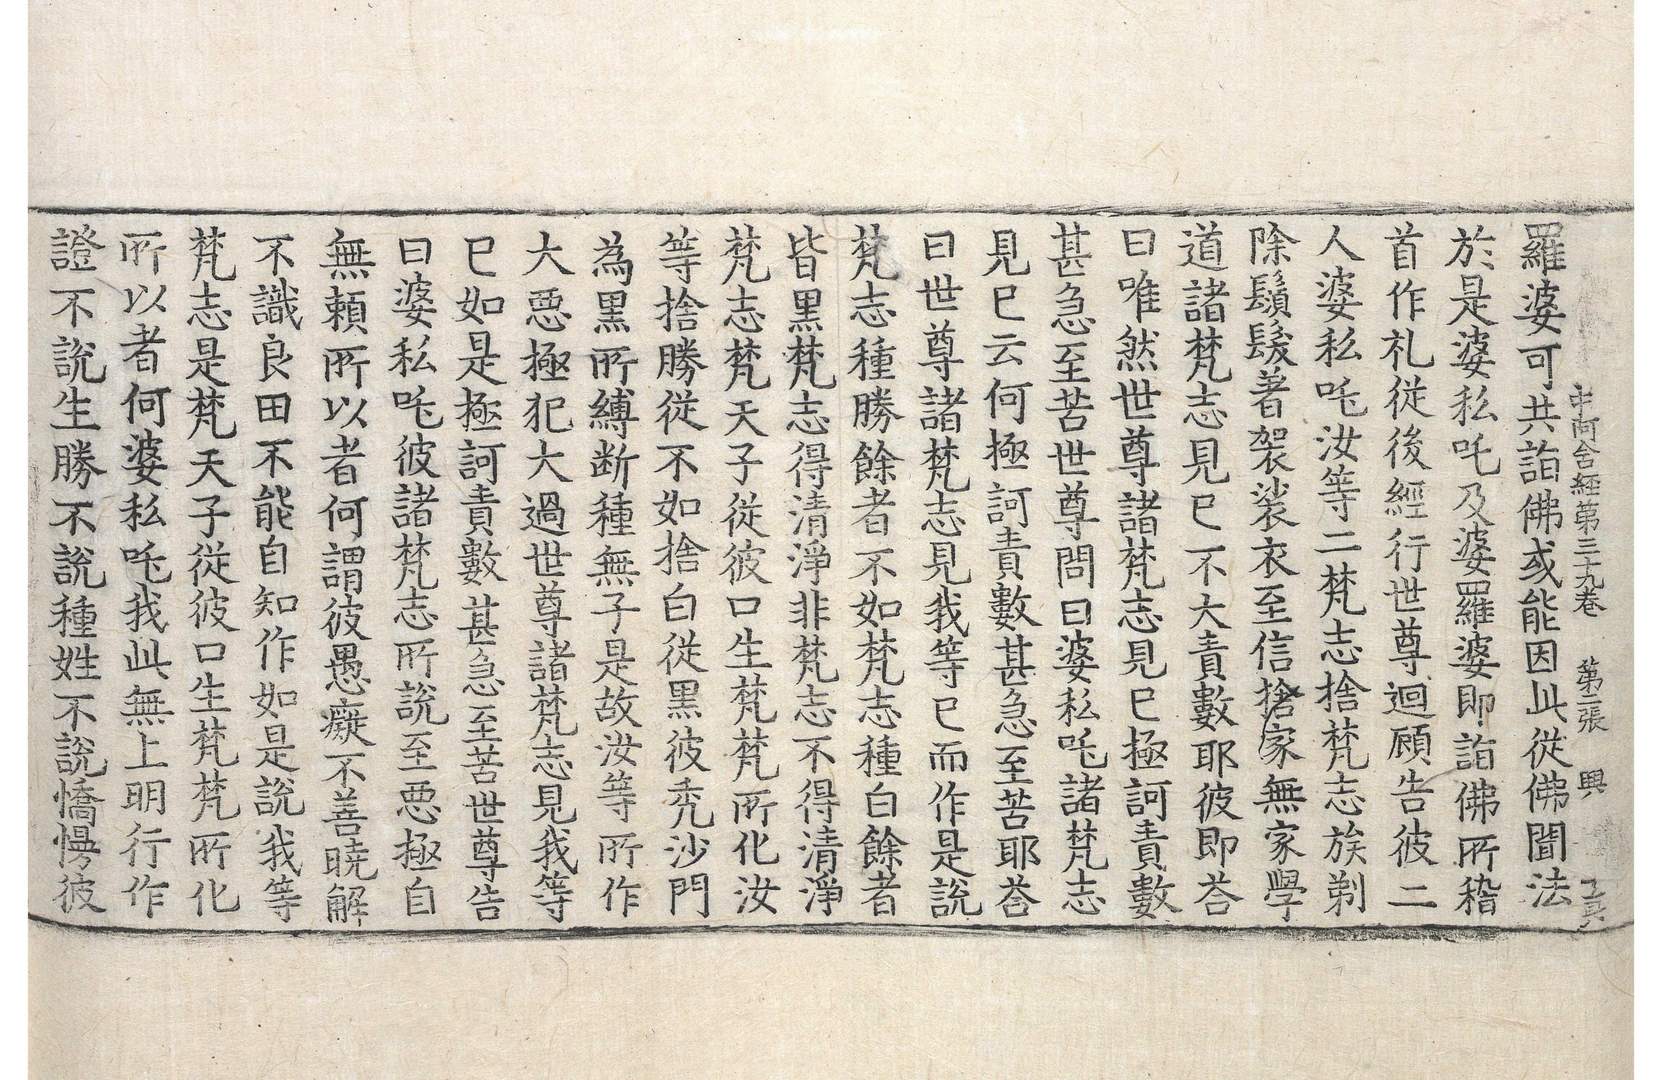 中阿含經第三十九卷 第二張 興
羅婆可共詣佛或能因此從佛聞法
於是婆私吒及婆羅婆即詣佛所稽
首作礼從後經行世尊迴顧告彼二
人婆私吒汝等二梵志捨梵志族剃
除鬚髮著袈裟衣至信捨家無家學
道諸梵志見已不大責數耶彼即荅
曰唯然世尊諸梵志見已極訶責數
甚急至苦世尊問曰婆私吒諸梵志
見已云何極訶責數甚急至苦耶荅
曰世尊諸梵志見我等已而作是說
梵志種勝餘者不如梵志種白餘者
皆黑梵志得清淨非梵志不得清淨
梵志梵天子從彼口生梵梵所化汝
等捨勝從不如捨白從黑彼禿沙門
為黑所縛断種無子是故汝等所作
大惡極犯大過世尊諸梵志見我等
已如是極訶責數甚急至苦世尊告
曰婆私吒彼諸梵志所說至惡極自
無賴所以者何謂彼愚癡不善曉解
不識良田不能自知作如是說我等
梵志是梵天子從彼口生梵梵所化
所以者何婆私吒我此無上明行作
證不說生勝不說種姓不說憍慢彼